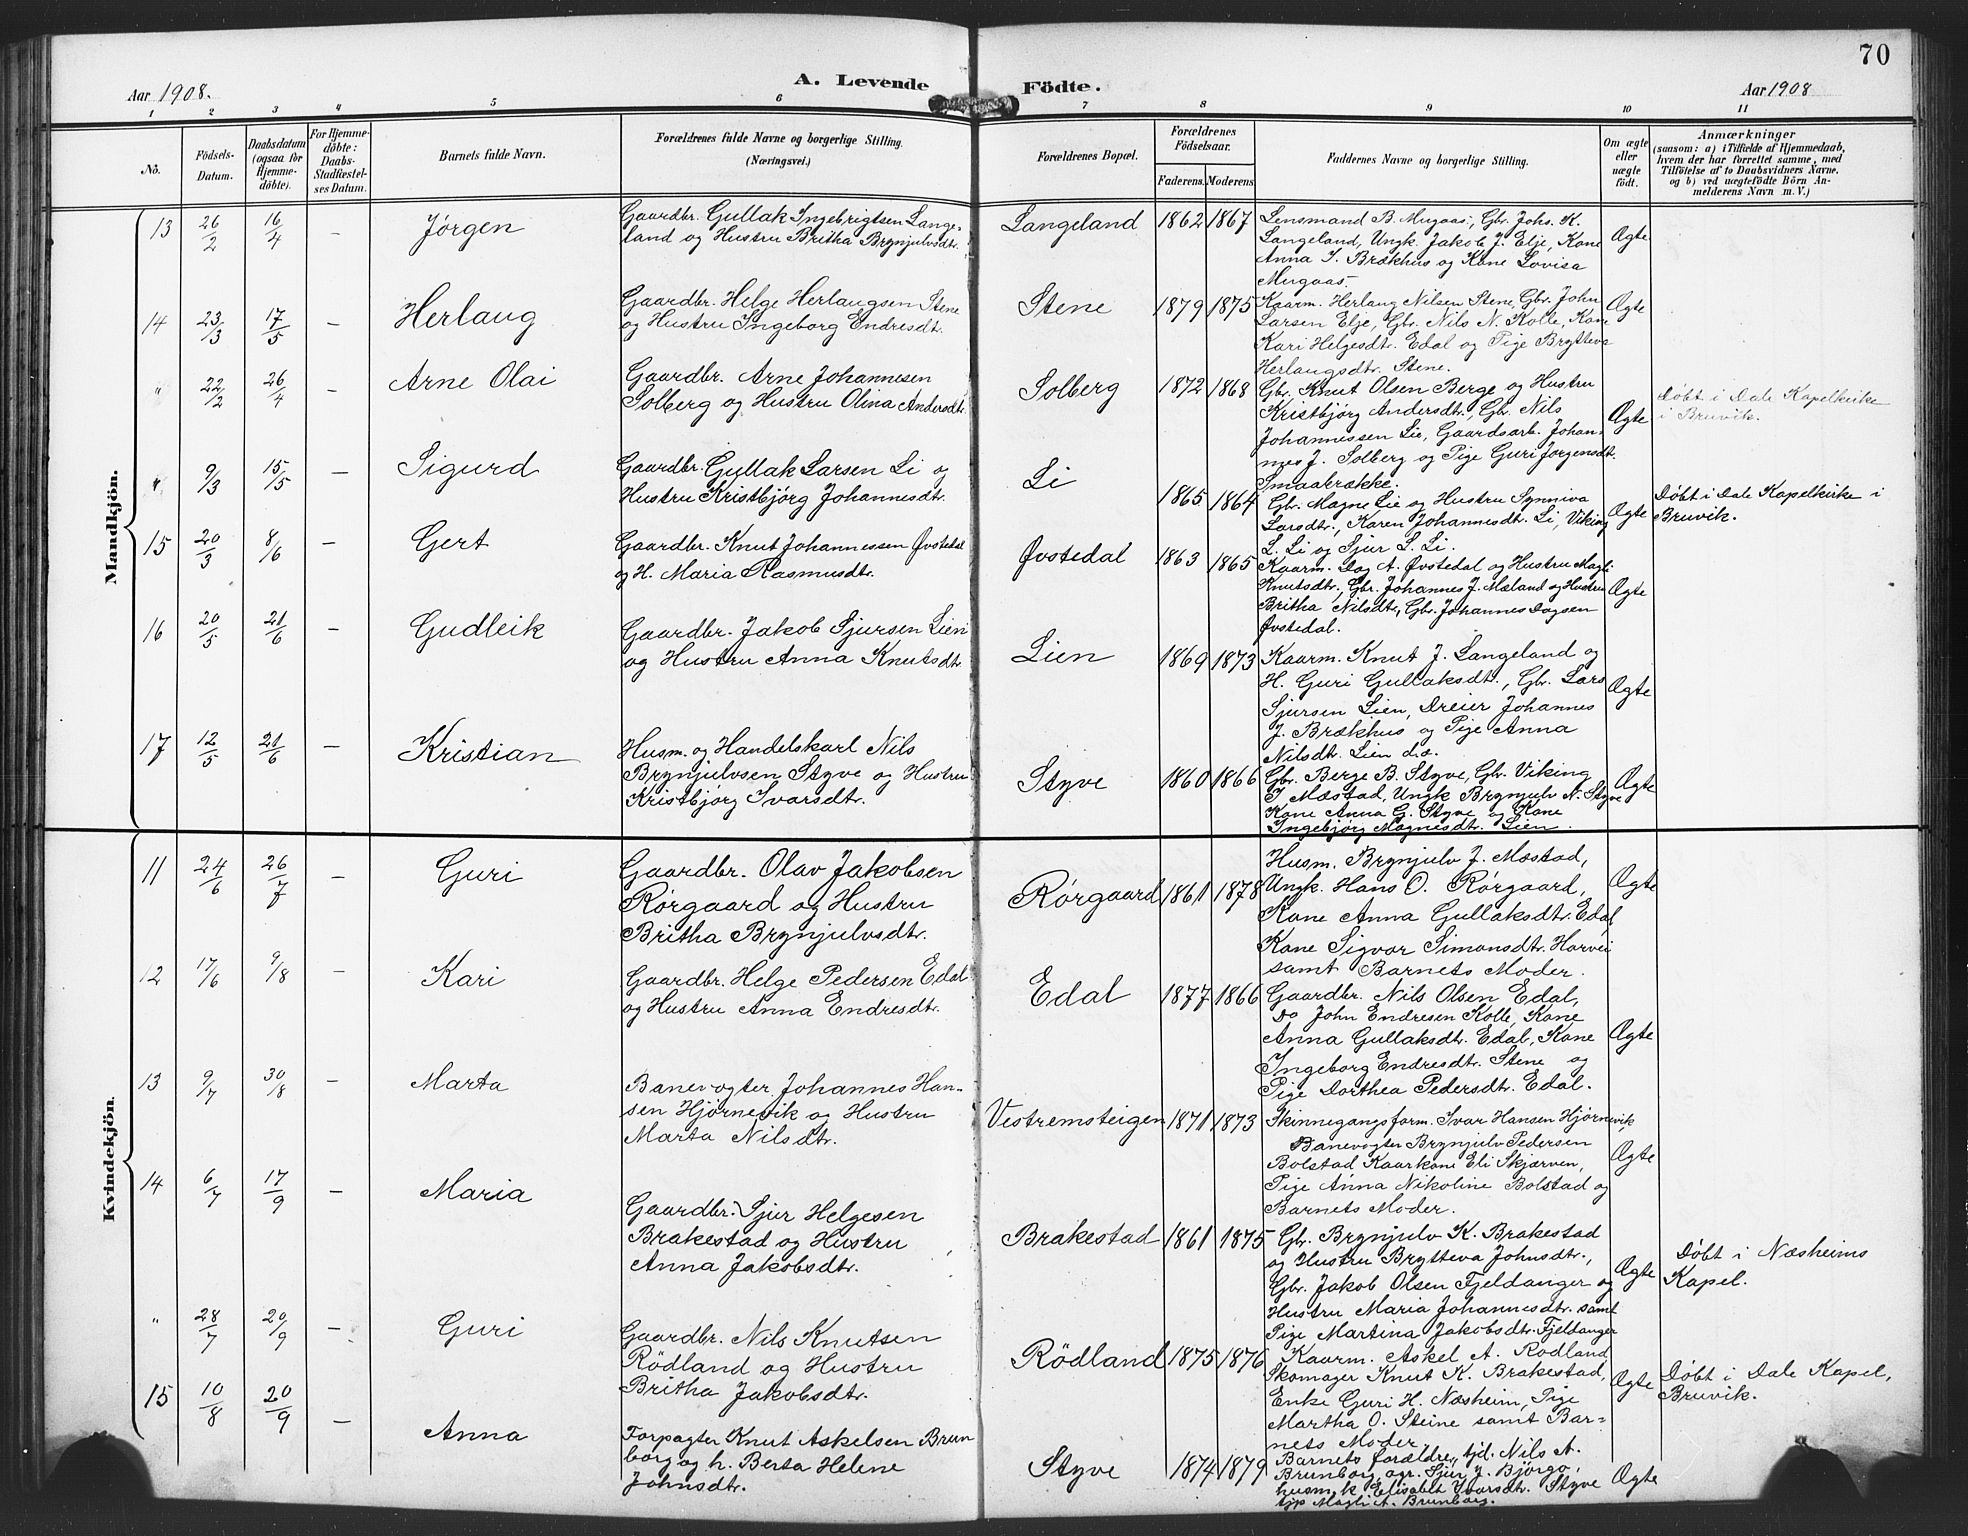 70
Aar 1908.
A. Levende Födte.
Aar 1908
1 2 3 4 5 6 7 8 9 10 11
No.
Födsels-Datum.
Daabsdatum (ogsaa for Hjemme-döbte).
For Hjemme-döbte: Daabs-Stadfæstel-ses Datum.
Barnets fulde Navn.
Forældrenes fulde Navne og borgerlige Stilling.
(Næringsvei.)
Forældrenes Bopæl.
Forældrenes Födselsaar.
Faderens. Moderens.
Faddernes Navne og borgerlige Stilling.
Om ægte eller uægte födt.
Anmærkninger
(saasom: a) i Tilfælde af Hjemmedaab,
hvem der har forrettet samme, med
Tilföielse af to Daabsvidners Navne,
og b) ved uægtefödte Börn An-
melderens Navn m. V.)
Mandkjön.
13 26/2 16/4 – Jørgen
Gaardbr. Gullak Ingebrigtsen Lange-
land og Hustru Britha Brynjulvsdtr.
Langeland 1862 1867
Lensmand B. Mugaas, Gbr. Johs. K.
Langeland, Ungk. Jakob J. Elje, Kone
Anna I. Brækhus og Kone Lovisa
Mugaas.
Ægte
14 23/3 17/5 – Herlaug
Gaardbr. Helge Herlaugsen Stene
og Hustru Ingeborg Endresdt.
Stene 1879 1875
Kaarm. Herlaug Nilsen Stene, Gbr. John
Larsen Elje, Gbr. Nils N. Kolle, Kone
Kari Helgesdtr. Edal og Pige Brytteva
Herlaugsdtr. Stene.
Ægte
" 22/2 26/4 – Arne Olai
Gaardbr. Arne Johannesen
Solberg og Hustru Olina Andersdtr.
Solberg 1872 1868
Gbr. Knut Olsen Berge og Hustru
Kristbjørg Andersdtr., Gbr. Nils
Johannessen Lie, Gaardsarb. Johan-
nes J. Solberg og Pige Guri Jørgensdt.
Smaabrække.
Ægte
Døbt i Dale Kapelkirke
i Bruvik.
" 9/3 15/5 – Sigurd
Gaardbr. Gullak Larsen Li og
Hustru Kristbjørg Johannesdtr.
Li 1865 1864
Gbr. Magne Lie og Hustru Synniva
Larsdtr., Karen Johannesdtr. Li, Viking
L. Li og Sjur L. Li.
Ægte
Døbt i Dale Kapelkirke i
Bruvik.
15 20/3 8/6 – Gert
Gaardbr. Knut Johannessen Øvstedal
og H. Maria Rasmusdtr.
Øvstedal 1863 1865
Kaarm. Dag A. Øvstedal og Hustru Magli
Knutsdtr., Gbr. Johannes J. Mæland og Hustru
Britha Nilsdtr., Gbr. Johannes Dagsen
Øvstedal.
Ægte
16 20/5 21/6 – Gudleik
Gaardbr. Jakob Sjursen Lien
og Hustru Anna Knutsdtr.
Lien 1869 1873
Kaarm. Knut J. Langeland og
H. Guri Gullaksdt., Gbr. Lars
Sjursen Lien, Dreier Johannes
J. Brækhus og Pige Anna
Nilsdtr. Lien d.æ.
Ægte
17 12/5 21/6 – Kristian
Husm. og Handelskarl Nils
Brynjulvsen Styve og Hustru
Kristbjørg Ivarsdtr.
Styve 1860 1866
Gbr. Berge B. Styve, Gbr. Viking
I Mæstad, Ungk Brynjulv N. Styve
Kone Anna G. Styve og Kone
Ingebjørg Magnesdtr. Lien.
Ægte
Kvindekjön.
11 24/6 26/7 – Guri
Gaardbr. Olav Jakobsen
Rørgaard og Hustru
Britha Brynjulvsdtr.
Rørgaard 1861 1878
Husm. Brynjulv J. Mæstad,
Ungk. Hans O. Rørgaard,
Kone Anna Gullaksdtr. Edal
Kone Sigvor Simonsdtr. Horvei
samt Barnets Moder.
Ægte
12 17/6 9/8 – Kari
Gaardbr. Helge Pedersen Edal
og Hustru Anna Endresdtr.
Edal 1877 1866
Gaardbr. Nils Olsen Edal,
Do John Endresen Kolle, Kone
Anna Gullaksdtr. Edal, Kone
Ingeborg Endresdtr. Stene og
Pige Dorthea Pedersdtr. Edal.
Ægte
13 9/7 30/8 – Marta
Banevogter Johannes Han-
sen Hjørnevik og Hustru
Marta Nilsdtr.
Vestremsteigen 1871 1873
Skinnegangsform. Ivar Hansen Hjørnevik,
Banevogter Brynjulv Pedersen
Bolstad Kaarkone Eli Skjærven,
Pige Anna Nikoline Bolstad og
Barnets Moder.
Ægte
14 6/7 17/9 – Maria
Gaardbr. Sjur Helgesen
Brakestad og Hustru
Anna Jakobsdtr.
Brakestad 1861 1875
Gbr. Brynjulv K. Brakestad
og Hustru Brytteva Johnsdtr.,
Gbr. Jakob Olsen Fjeldanger og
Hustru Maria Johannesdtr. samt
Pige Martina Jakobsdtr. Fjeldanger
Ægte
Døbt i Næsheims
Kapel.
" 28/7 20/9 – Guri
Gaardbr. Nils Knutsen
Rödland og Hustru
Britha Jakobsdtr.
Rödland 1875 1876
Kaarm. Askel A. Rödland
Skomager Knut K. Brakestad,
Enke Guri H. Næsheim, Pige
Martha O. Steine samt Bar-
nets Moder.
Ægte
Døbt i Dale Kapel,
Bruvik.
15 10/8 20/9 – Anna
Forpagter Knut Askelsen Brun
borg og h. Berta Helene
Johnsdtr.
Styve 1874 1879
Barnets forældre, tjd. Nils A.
Brunborg, gr. Sjur J. Björgo,
husm. k Elisabet Ivarsdtr. Styve
tjp Magli A. Brunborg.
Ægte